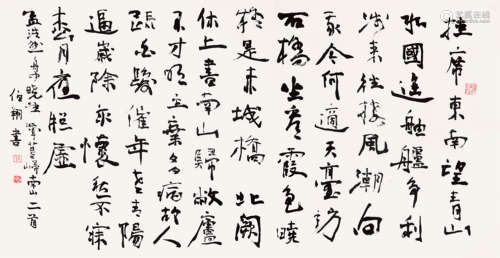 挂席東南望青山
水國遥舳艫争利
涉来往接風潮问
我今何適天臺訪
石橋坐看霞色曉
疑是赤城標 北闕
休上書南山歸敝廬
不才明主棄多病故人
疏白髮催年老青陽
逼歲除永懷愁不寐
松月夜窗虚
孟浩然舟中曉望 歲暮歸南山二首
伯翔書